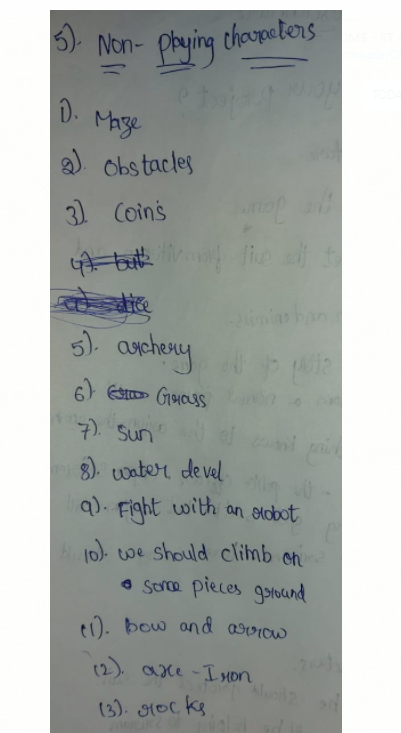 5). Non-Playing characters
1). Maze
2). Obstacles
3). Coins
5). archery
6). Grass
7). Sun
8). water devel
9). Fight with an robot
10). we should climb on
some pieces ground
(1). bow and arrow
(2). axe - Iron
(3). rocks